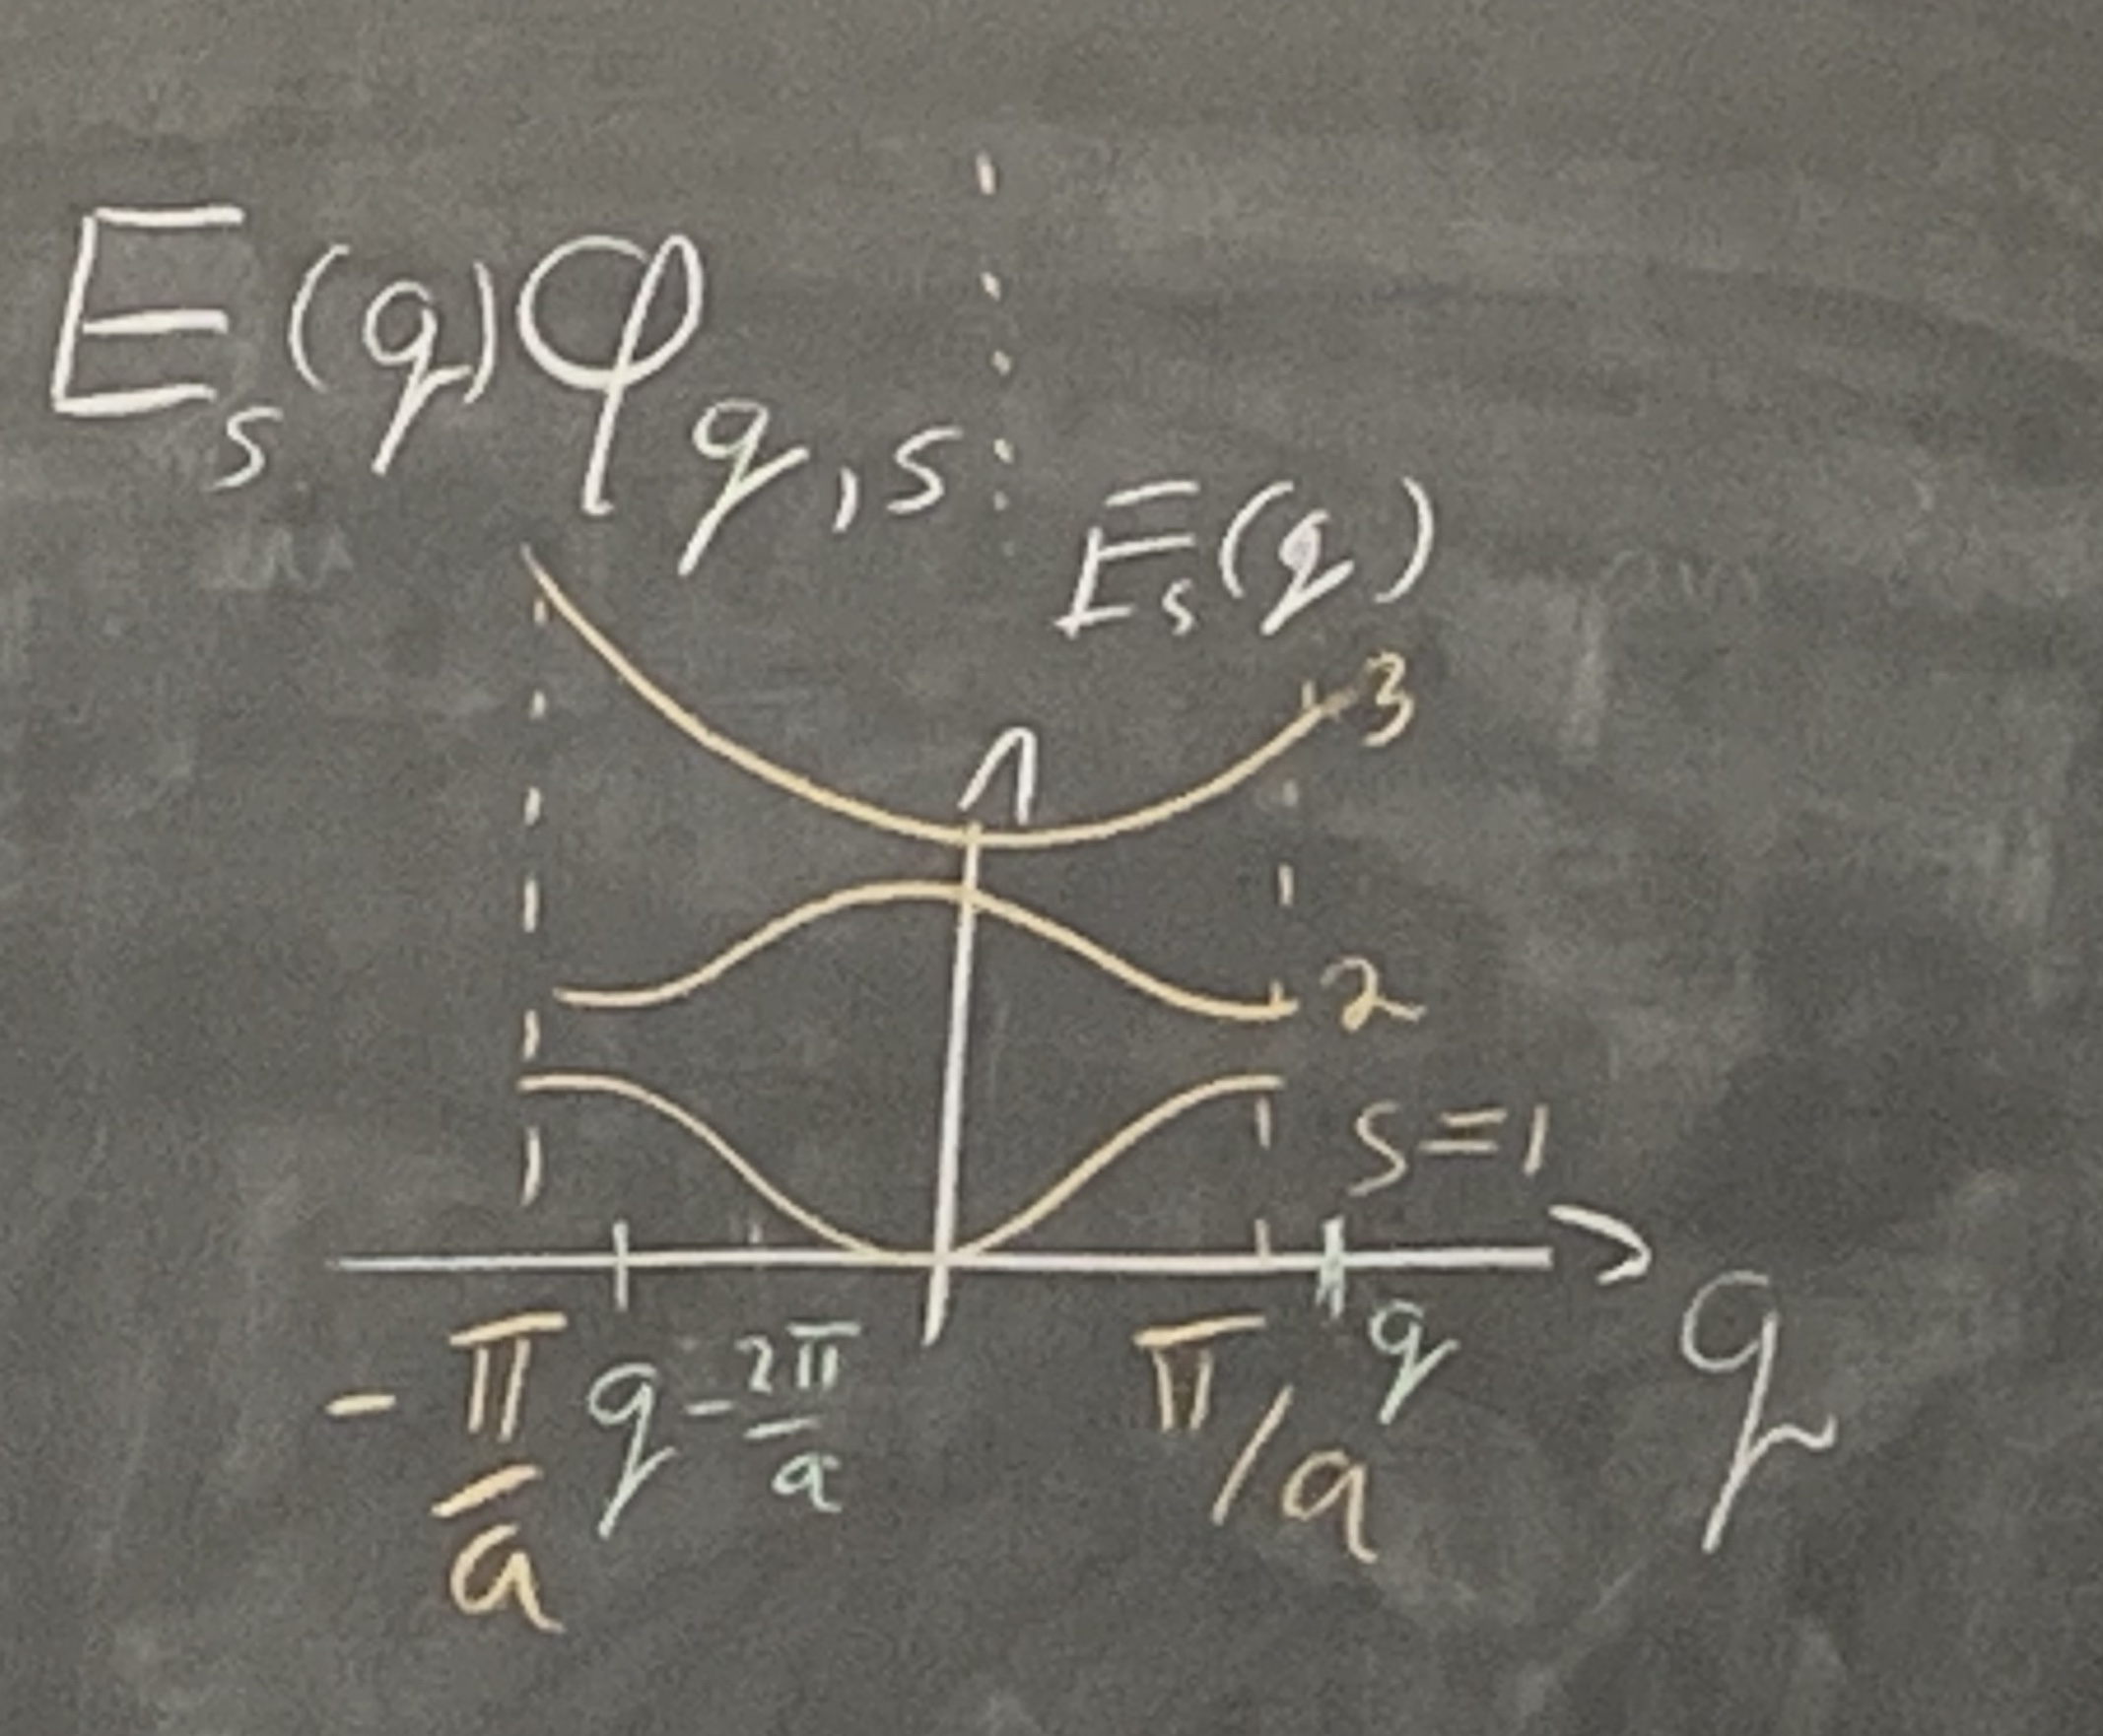 E_s(q)φ_{q,s}
E_s(q)
3
2
s=1
-π/a q-2π/a π/a q q